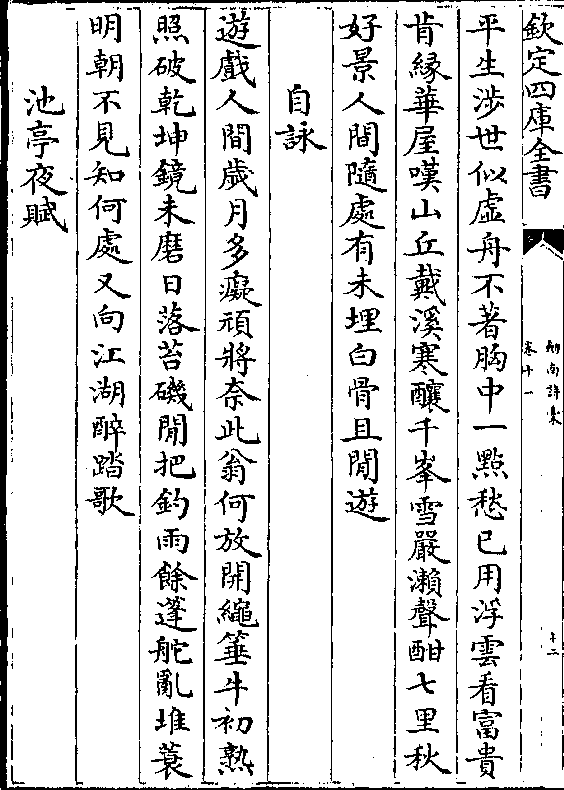 欽定四庫全書
劒南詩稾
卷十一
平生涉世似虚舟不著胸中一點愁已用浮雲看富貴
肯縁華屋嘆山丘戴溪寒釀千峯雪嚴瀨聲酣七里秋
好景人間隨處有未埋白骨且閒遊
自詠
遊戲人間歲月多癡頑將奈此翁何放開繩箠牛初熟
照破乾坤鏡未磨日落苔磯閒把釣雨餘蓬舵亂堆蓑
明朝不見知何處又向江湖醉踏歌
池亭夜賦